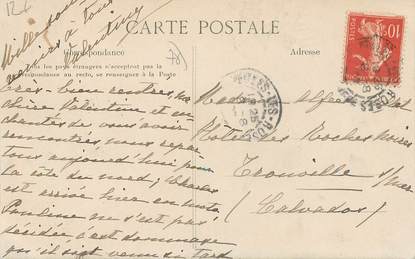 CARTE POSTALE
Correspondance
Tous les pays étrangers n'acceptent pas la
correspondance au recto, se renseigner à la Poste
Adresse
10
Mille bons
à tous
Valentine
bien rentrés, ma
chère Valentine et en-
chantés de vous avoir
rencontrés, nous repar-
tons aujourd'hui pour
la côte du nord, Charles
est arrivé hier en moto
Pauline ne s'est pas
décidée c'est dommage
qu'il soit venu si tard
Madame Alfred
Hôtel des Roches noires
Trouville s/mer
(Calvados)